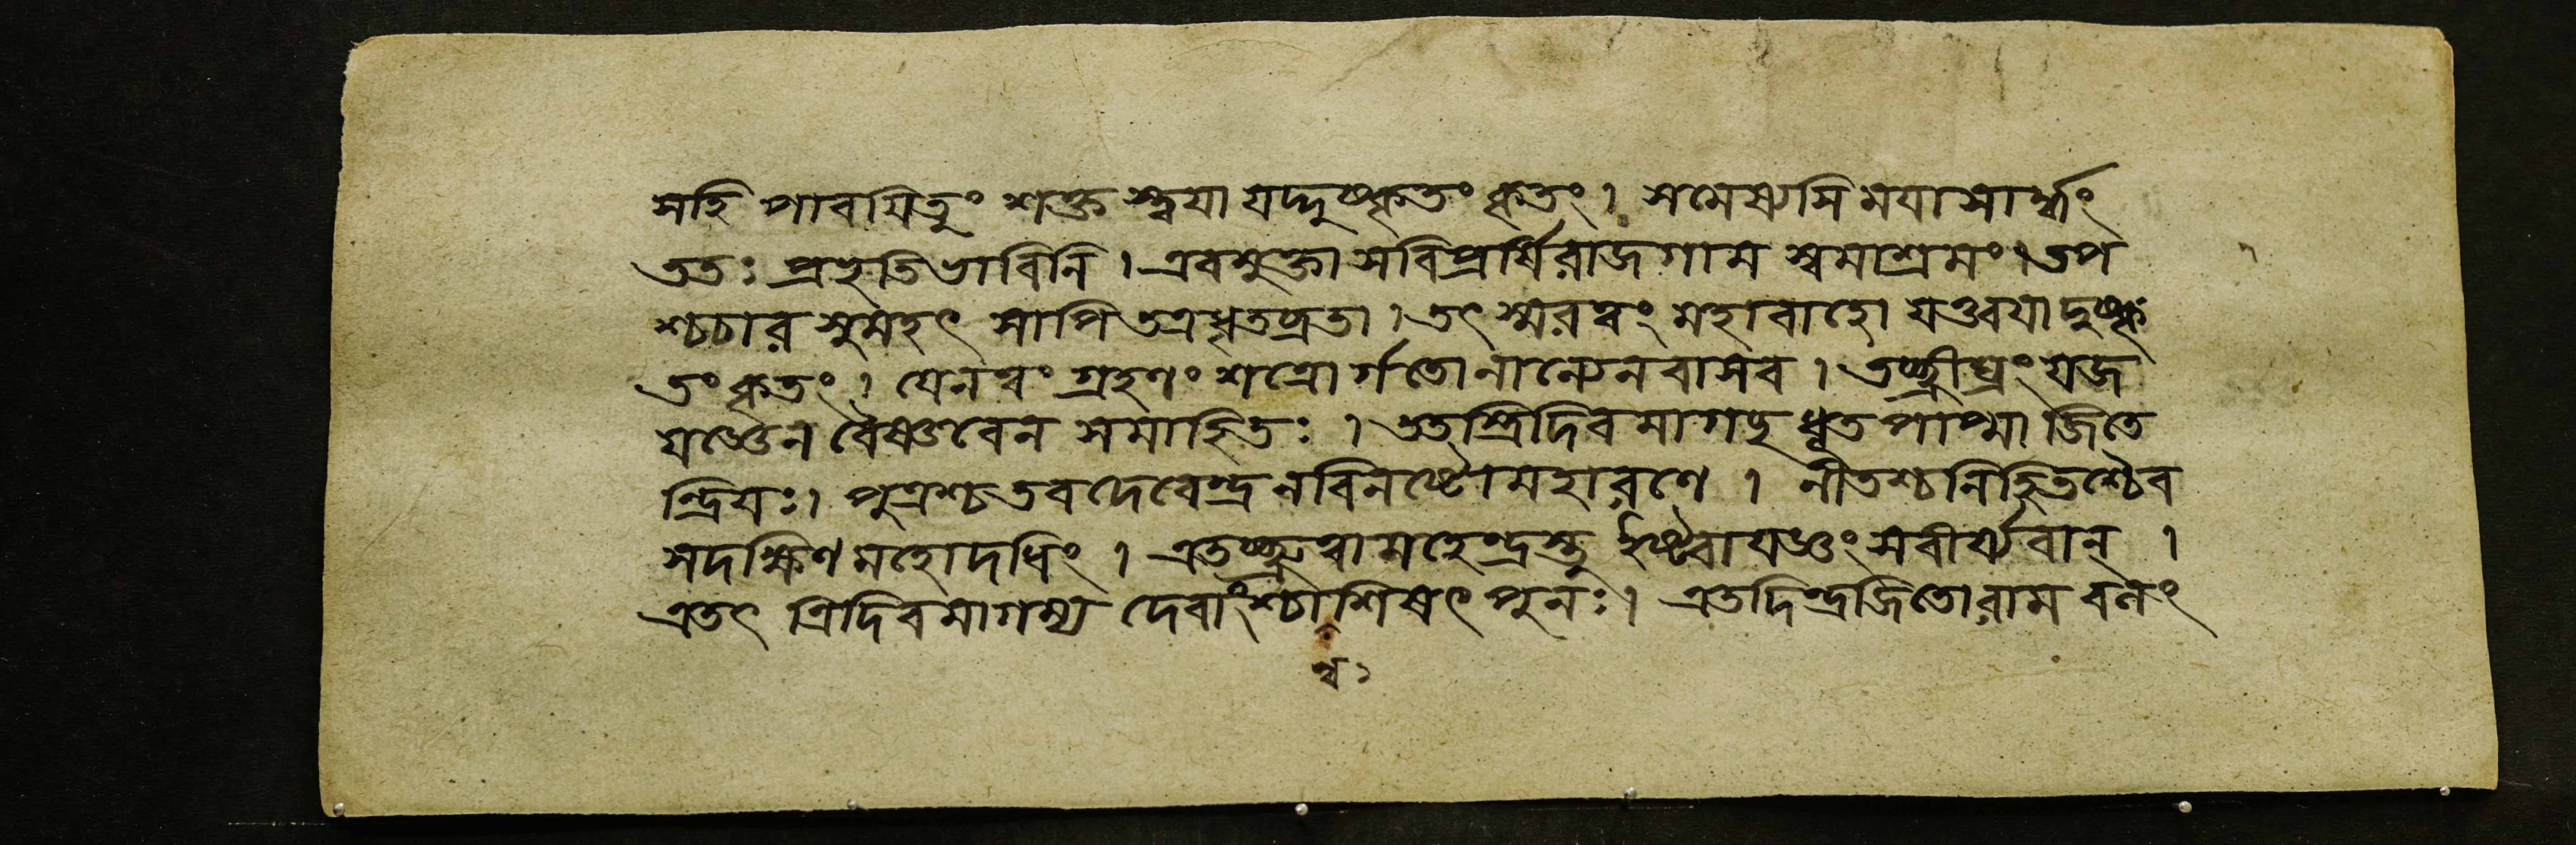 সহি পাবযিতুং শক্ত স্ত্বযা যদ্দুষ্কৃতং কৃতং। সমেষ্যসি মযাসার্দ্ধং
ততঃ প্রভৃতিভাবিনি। এবমুক্তা সবিপ্রর্ষিরাজগাম স্বমাশ্রমং। তপ
শ্চচার সুমহৎ সাপি তত্রধৃতব্রতা। তৎ স্মরত্বং মহাবাহো যত্ত্বযাদুষ্কৃ
তংকৃতং। যেনত্বং গ্রহণং শত্রোর্গতোনান্যেনবাসব। তচ্ছীঘ্রং যজ
যজ্ঞেন বৈষ্ণবেন সমাহিতঃ। ততস্ত্রিদিবমাগচ্ছ ধূতপাপ্মা জিতে
ন্দ্রিযঃ। পুত্রশ্চতবদেবেন্দ্র নবিনষ্টোমহারণে। নীতশ্চনিহিতশ্চৈব
সদক্ষিণ মহোদধিং। এতচ্ছ্রুত্বামহেন্দ্রস্তু ইষ্ট্বাযজ্ঞং সবীর্য্যবান্।
এতৎ ত্রিদিবমাগম্য দেবাংশ্চাশিষৎ পুনঃ। এতদিন্দ্রজিতোরাম বলং
ন্ব১